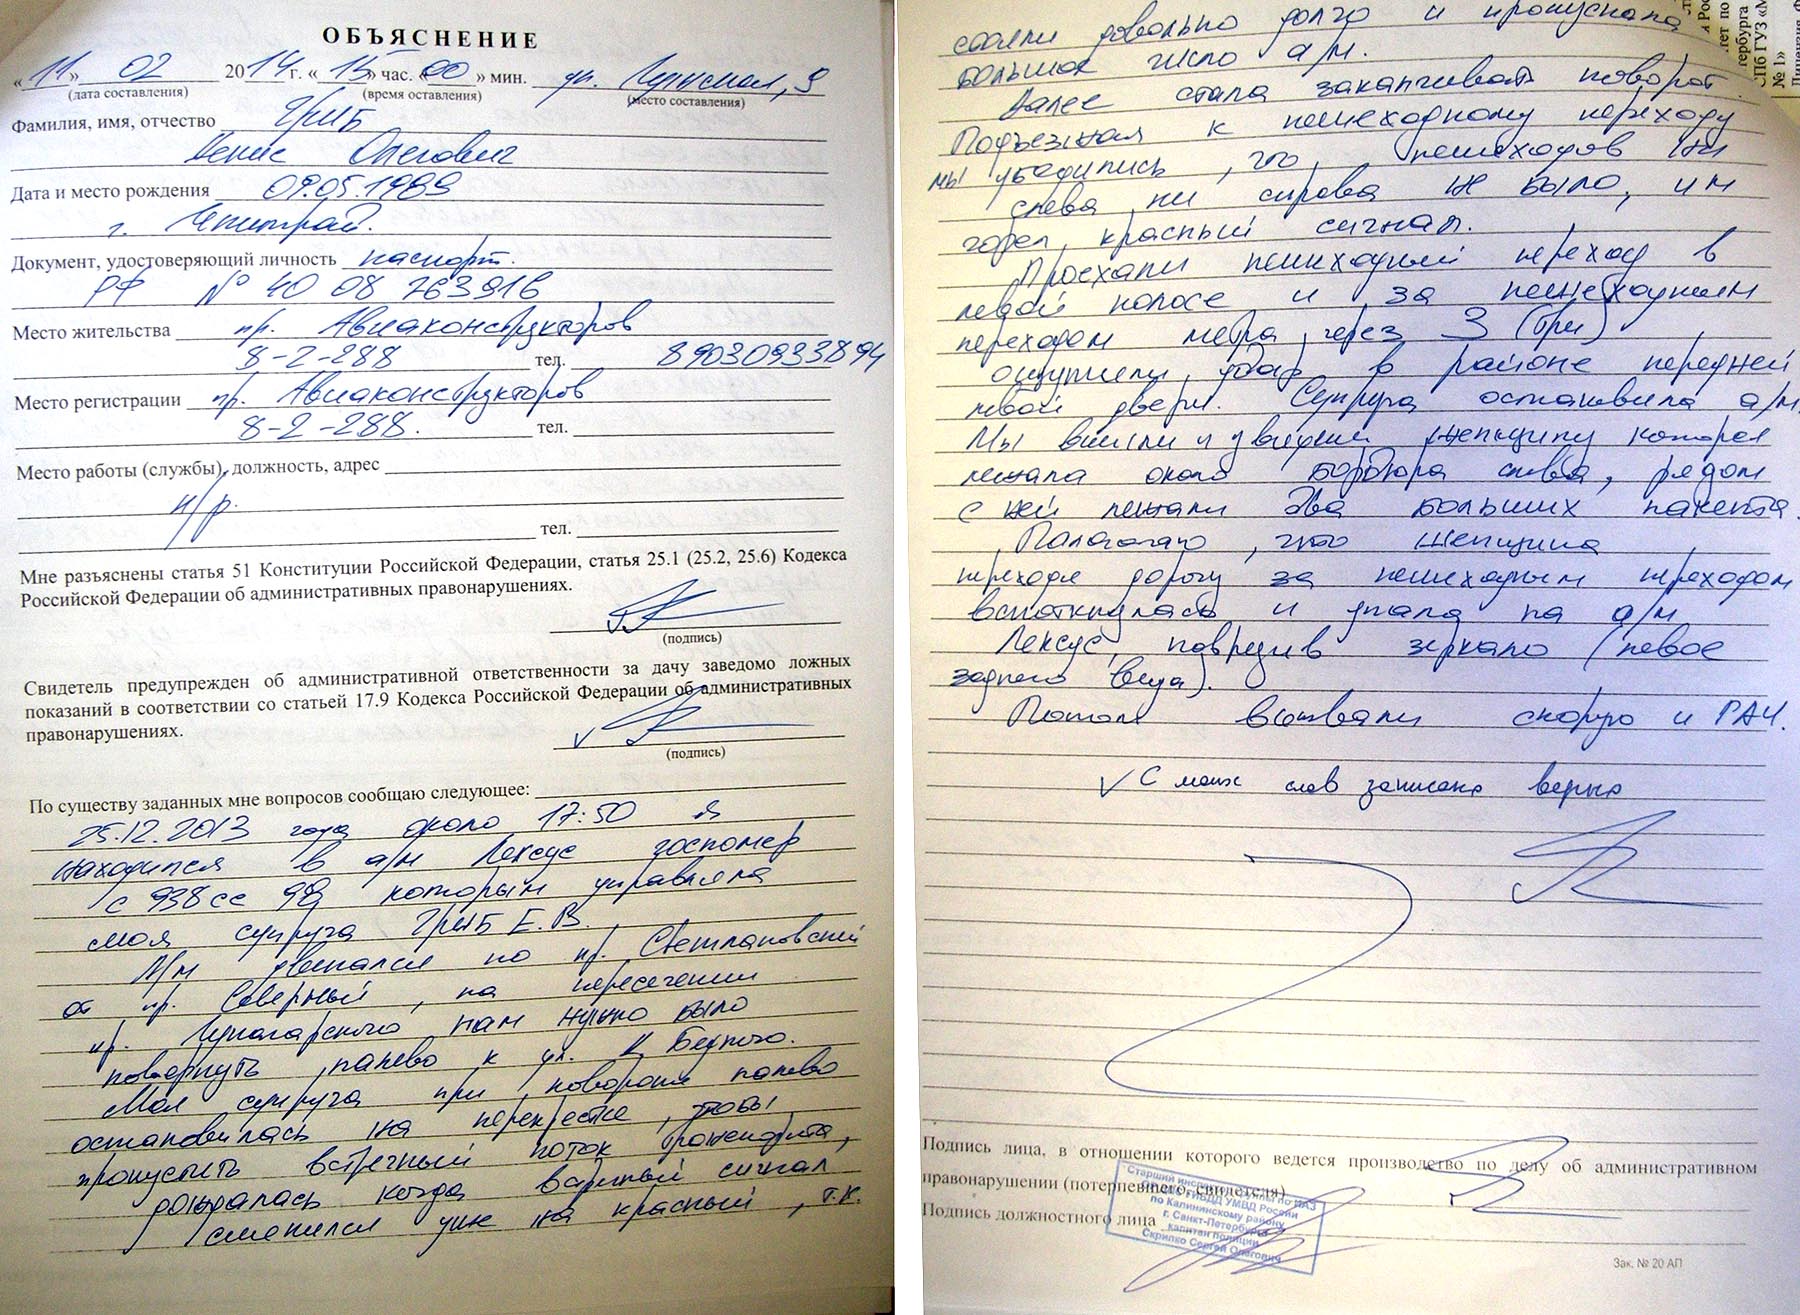 ОБЪЯСНЕНИЕ
« 11 » 02 2014 г. « 15 » час. « 00 » мин. ул.
(дата составления) (время оставления) (место составления)
Фамилия, имя, отчество Гриб
Денис Олегович
Дата и место рождения 09.05.1989
г.
Документ, удостоверяющий личность паспорт.
РФ № 40 08 763916
Место жительства пр. Авиаконструкторов
8-2-288 тел. 89030933894
Место регистрации пр. Авиаконструкторов
8-2-288. тел.
Место работы (службы), должность, адрес
н/р. тел.
Мне разъяснены статья 51 Конституции Российской Федерации, статья 25.1 (25.2, 25.6) Кодекса
Российской Федерации об административных правонарушениях.
(подпись)
Свидетель предупрежден об административной ответственности за дачу заведомо ложных
показаний в соответствии со статьей 17.9 Кодекса Российской Федерации об административных
правонарушениях.
(подпись)
По существу заданных мне вопросов сообщаю следующее:
25.12.2013 года около 17:50 я
находился в а/м Лексус госномер
с 938 сс 98, которым управляла
моя супруга Гриб Е.В.
А/м двигался по пр. Светлановский
от пр. Северный, на пересечении
пр. Луначарского нам нужно было
повернуть налево к ул. К Бедного.
Моя супруга при повороте налево
остановилась на перекрестке, чтобы
пропустить встречный поток транспорта,
дождалась когда сигнал
сменился уже на красный, т.к.
стояли довольно долго и пропускала
большое число а/м.
Далее стала заканчивать поворот.
Подъезжая к пешеходному переходу
мы убедились, что, пешеходов ни
слева ни справа не было, им
горел красный сигнал.
Проехали пешеходный переход в
левой полосе и за пешеходным
переходом метра через 3 (три)
ощутили удар в районе передней
левой двери. Супруга остановила а/м.
Мы вышли и увидели женщину которая
лежала около бордюра слева, рядом
с ней лежали два больших пакета.
Полагаю, что женщина
переходя дорогу за пешеходным переходом
споткнулась и упала на а/м
Лексус, повредив зеркало (левое
заднего вида).
Потом вызвали скорую и ГАИ.
С моих слов записано верно
Подпись лица, в отношении которого ведется производство по делу об административном
правонарушении (потерпевшего, свидетеля)
Подпись должностного лица
Старший инспектор группы по ИАЗ
ГИБДД УМВД России
по Калининскому району
г. Санкт-Петербурга
капитан полиции
Скрипко Сергей Олегович
Зак. № 20 АП
СПб ГУЗ «М
№ 1»